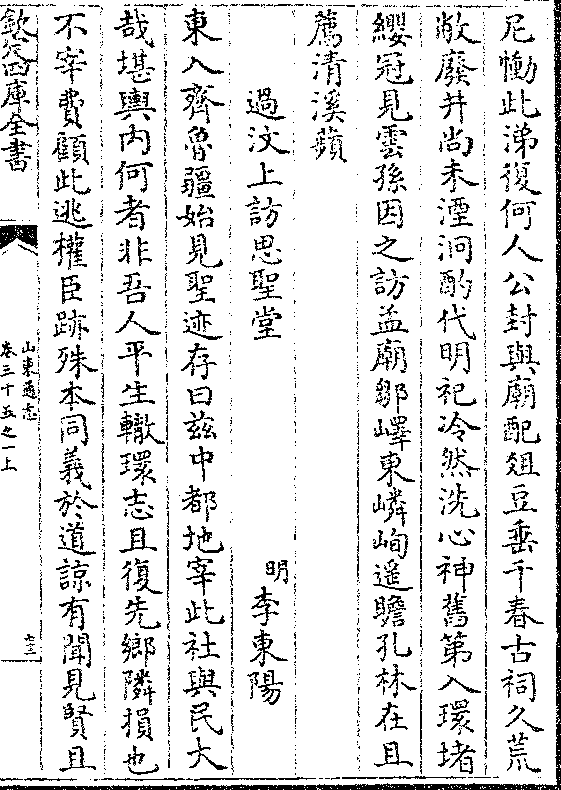 尼慟此涕復何人公封與廟配俎豆垂千春古祠久荒
敝廢井尚未湮泂酌代明祀冷然洗心神舊第入環堵
纓冠見雲孫因之訪孟廟鄒嶧東嶙峋遙瞻孔林在且
薦清溪蘋
過汶上訪思聖堂 明 李東陽
東入齊魯疆始見聖迹存曰兹中都地宰此社與民大
哉堪輿内何者非吾人平生轍環志且復先鄉隣損也
不宰費顧此逃權臣跡殊本同義於道諒有聞見賢且
欽定四庫全書
山東通志
卷三十五之一上
七三